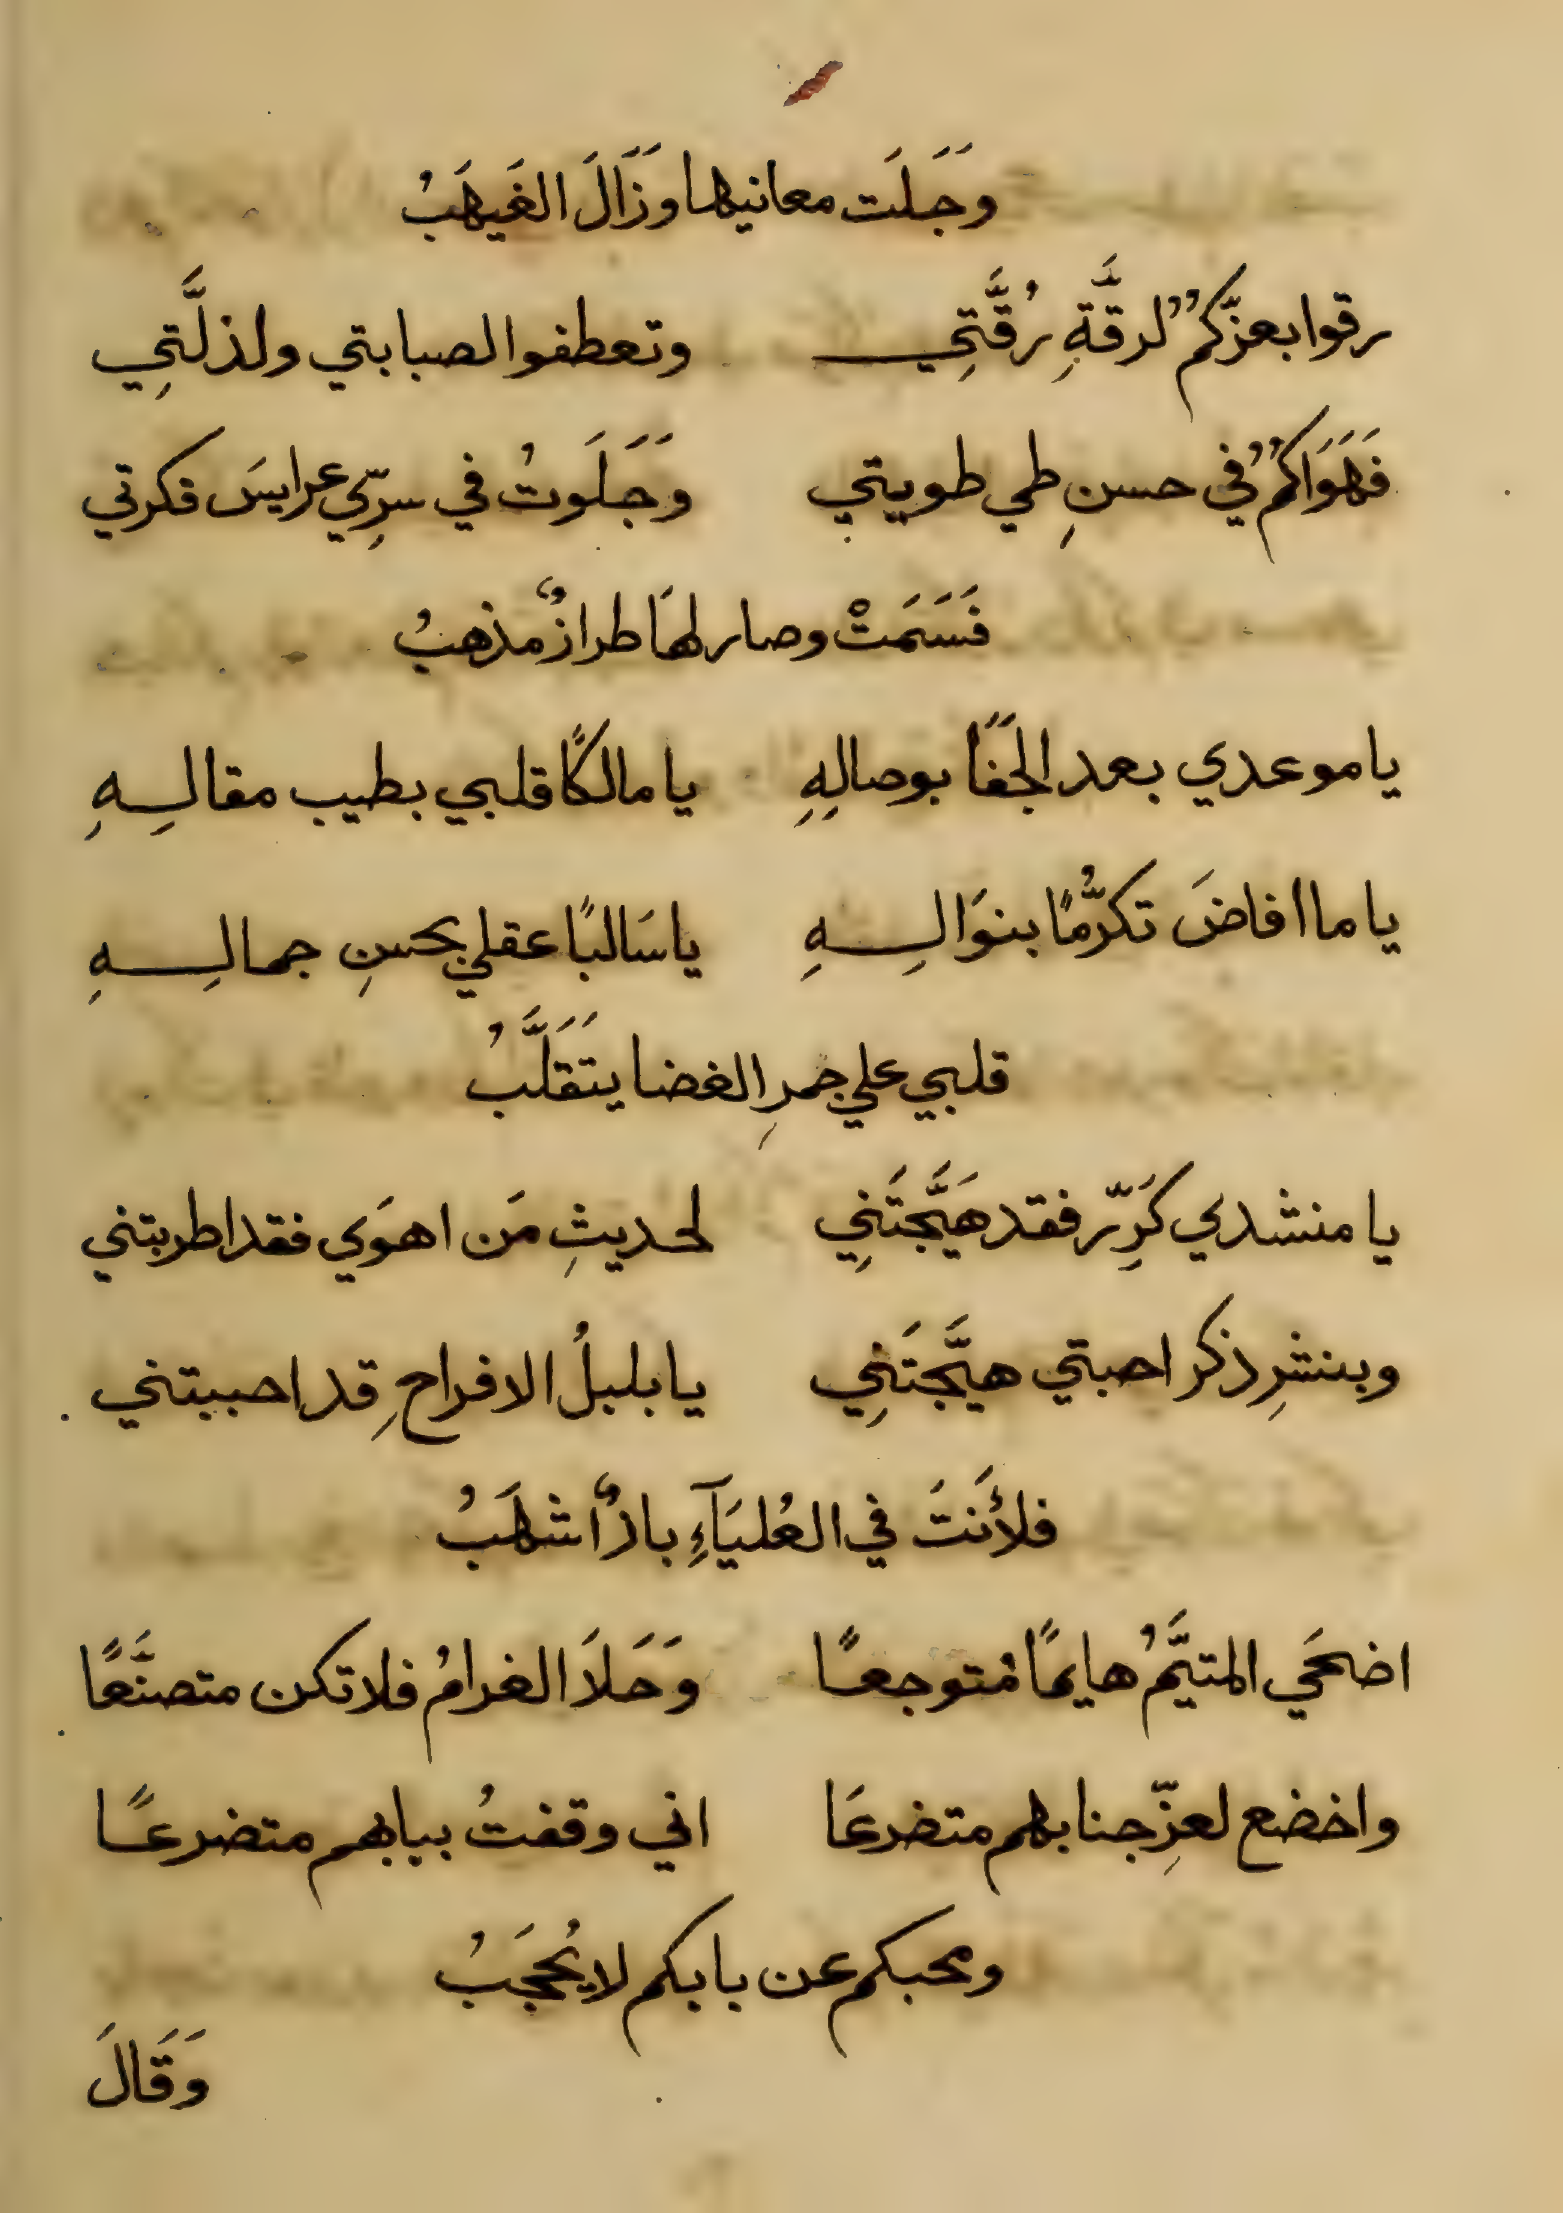 وَجَلَت معانيها وَزَالَ الغَيهَبُ
رقوا بعزّكمُ لرقَّةِ رُقَّتِي وتعطفوا لصبابتي ولذلَّتِي
فَهَوَاكمُ في حسنِ طي طويتي وَجَلَوتُ في سرِّي عرايسَ فكرتي
فَسَمَتْ وصار لهَا طرازٌ مذهبُ
يا موعدي بعد الجفَا بوصالِهِ يا مالكًا قلبي بطيب مقالِهِ
يا ما افاضَ تكرُّمًا بنوَالِهِ يا سَالبًا عقلي بحسنِ جمالِهِ
قلبي علي جمرِ الغضا يتَقَلَّبُ
يا منشدي كَرِّر فقد هَيَّجتَنِي لحديثِ مَن اهوَي فقد اطربتني
وبنشرِ ذكر احبتي هيَّجتَنِي يا بلبلُ الافراحِ قد احببتني
فلأَنتَ في العُليَآءِ بازٌ أشهَبُ
اضحَي المتيَّمُ هايمًا مُتوجعًا وَحَلاَ الغرامُ فلا تكن متصنَّعًا
واخضع لعزِّ جنابهم متضرعَا اني وقفتُ ببابهم متضرعًا
ومحبكم عن بابكم لا يُحجَبُ
وَقَالَ